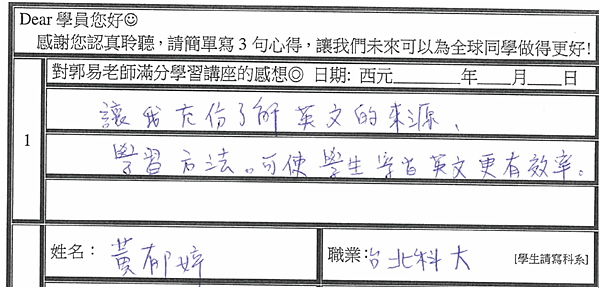 Dear 學員您好☺
感謝您認真聆聽，請簡單寫 3 句心得，讓我們未來可以為全球同學做得更好!
對郭易老師滿分學習講座的感想◎ 日期: 西元________年____月____日
1
讓我充份了解英文的來源、
學習方法。可使學生學習英文更有效率。
姓名： 黃郁婷 職業： 台北科大 [學生請寫科系]